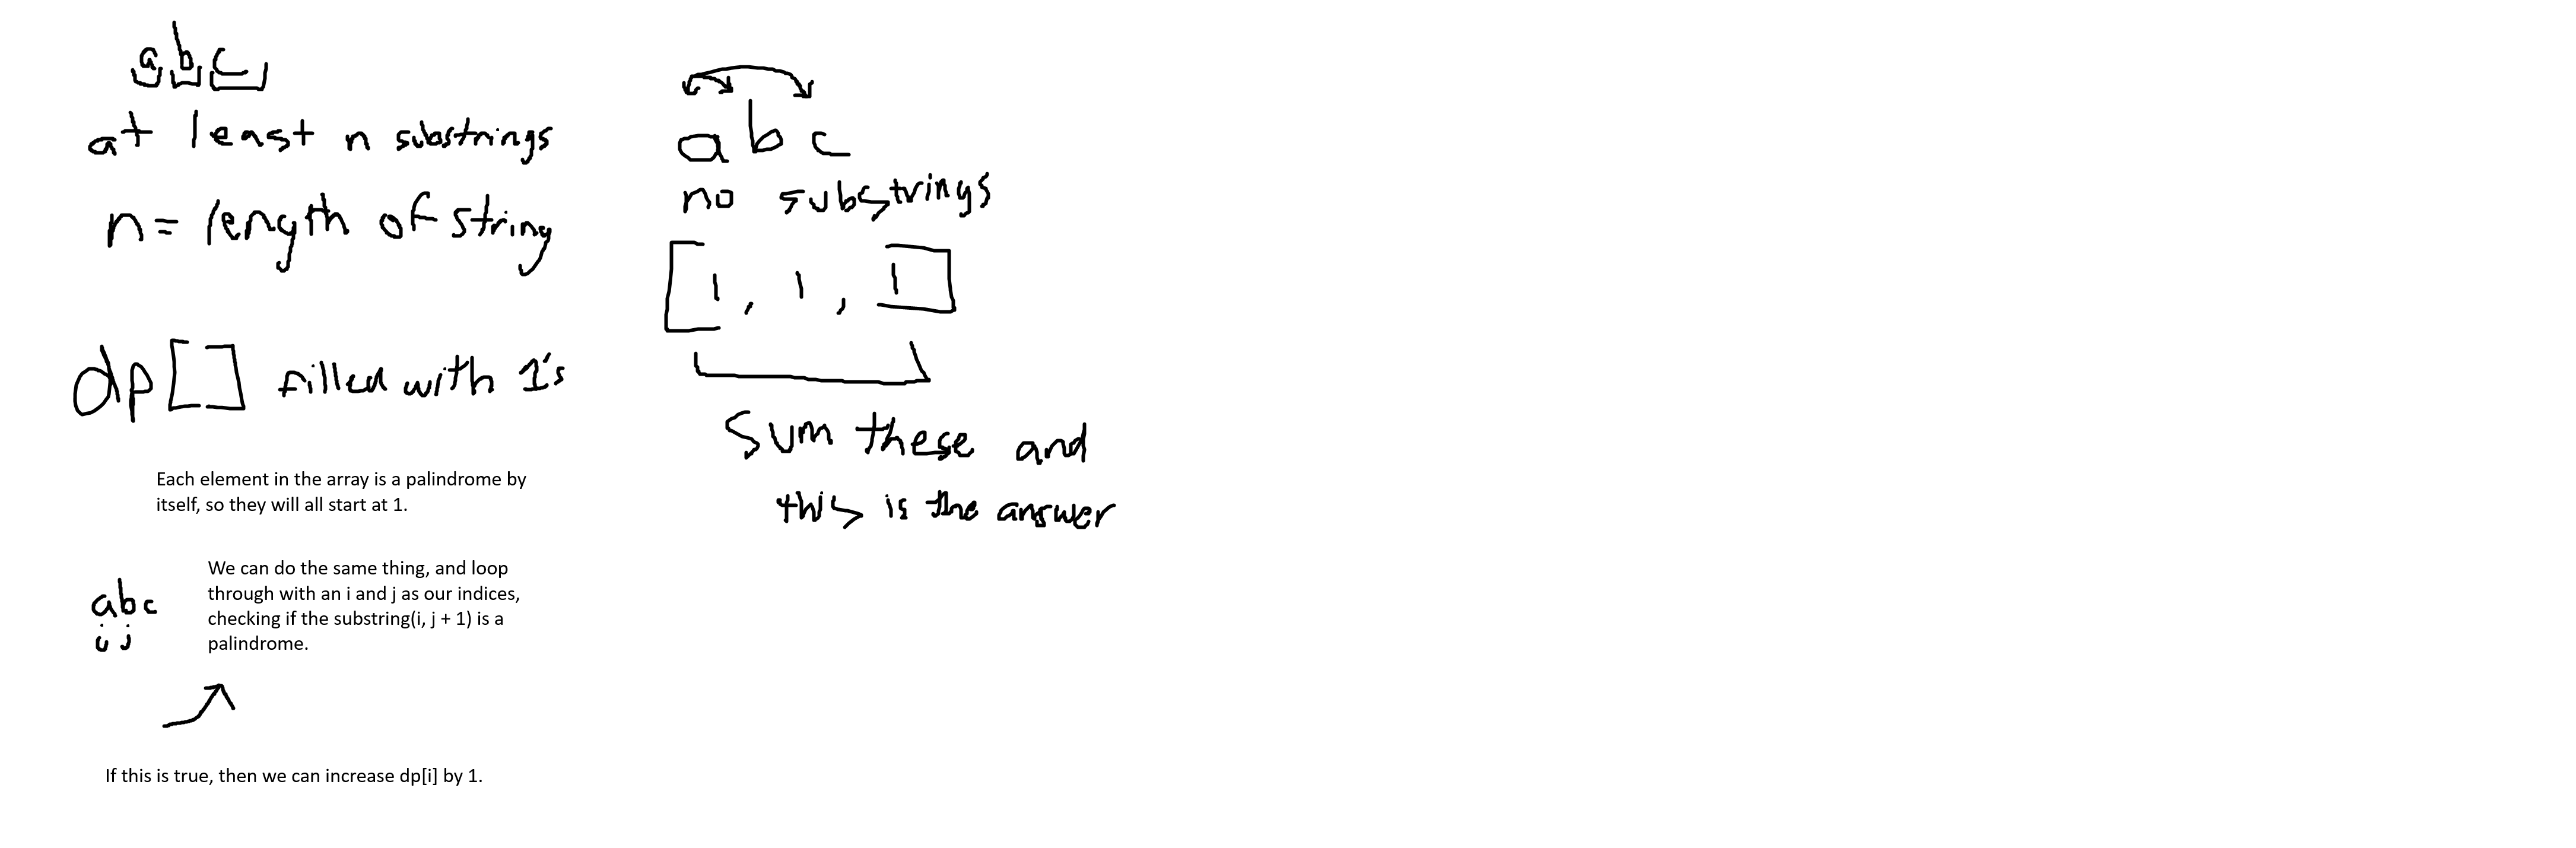 abc
at least n substrings
n = length of string
dp[] filled with 1's
Each element in the array is a palindrome by
itself, so they will all start at 1.
abc
i j
We can do the same thing, and loop
through with an i and j as our indices,
checking if the substring(i, j + 1) is a
palindrome.
If this is true, then we can increase dp[i] by 1.
abc
no substrings
[1, 1, 1]
Sum these and
this is the answer